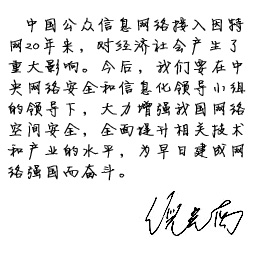 中国公众信息网络接入因特
网20年来，对经济社会产生了
重大影响。今后，我们要在中
央网络安全和信息化领导小组
的领导下，大力增强我国网络
空间安全，全面提升相关技术
和产业的水平，为早日建成网
络强国而奋斗。
倪光南